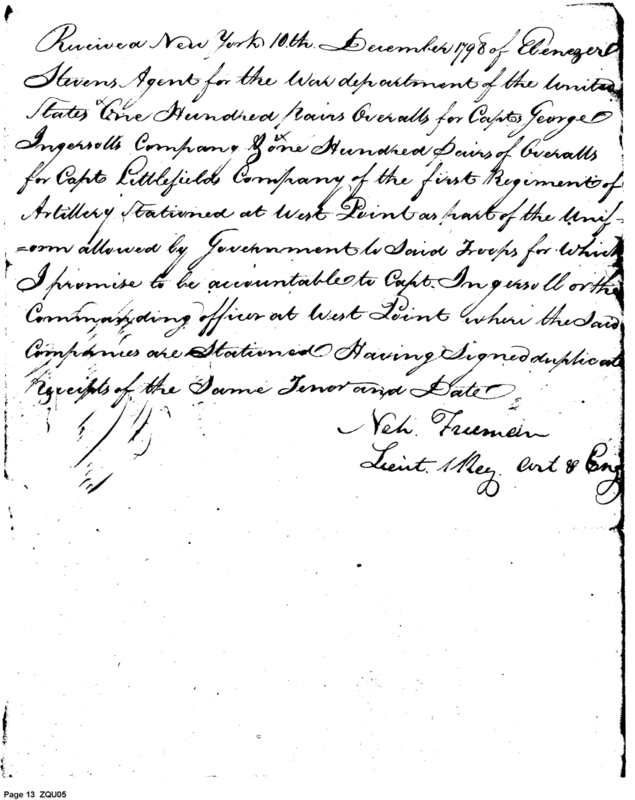 Recieved New York 10th. December 1798 of Ebenezer
Stevens Agent for the War department of the United
States One Hundred Pairs Overalls for Capt. George
Ingersolls Company & One Hundred Pairs of Overalls
for Capt Littlefields Company of the first Regiment of
Artillery Stationed at West Point as part of the Unif-
=orm allowed by Government to Said Troops for which
I promise to be accountable to Capt. Ingersoll or the
Commanding officer at West Point where the Said
Companies are Stationed Having Signed duplicate
Receipts of the Same Tenor and Date
Neh. Freeman
Lieut. 1 Reg. Art & Eng
Page 13 ZQU05